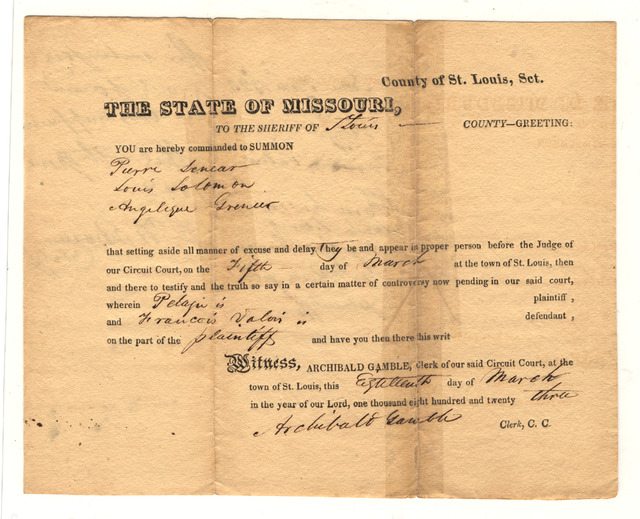 County of St. Louis, Sct.
THE STATE OF MISSOURI,
TO THE SHERIFF OF St Louis COUNTY—GREETING:
YOU are hereby commanded to SUMMON
Pierre
Louis Solomon
Angelique Grenier
that setting aside all manner of excuse and delay They be and appear in proper person before the Judge of
our Circuit Court, on the Fifth day of March at the town of St. Louis, then
and there to testify and the truth so say in a certain matter of controversy now pending in our said court,
wherein Pelagie is plaintiff,
and Francois Valois is defendant,
on the part of the plaintiff and have you then there this writ
Witness, ARCHIBALD GAMBLE, Clerk of our said Circuit Court, at the
town of St. Louis, this Eighteenth day of March
in the year of our Lord, one thousand eight hundred and twenty three
Archibald Gamble Clerk, C. C.